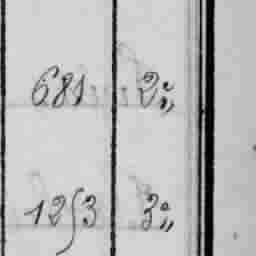 681 2°„
1253 3°„